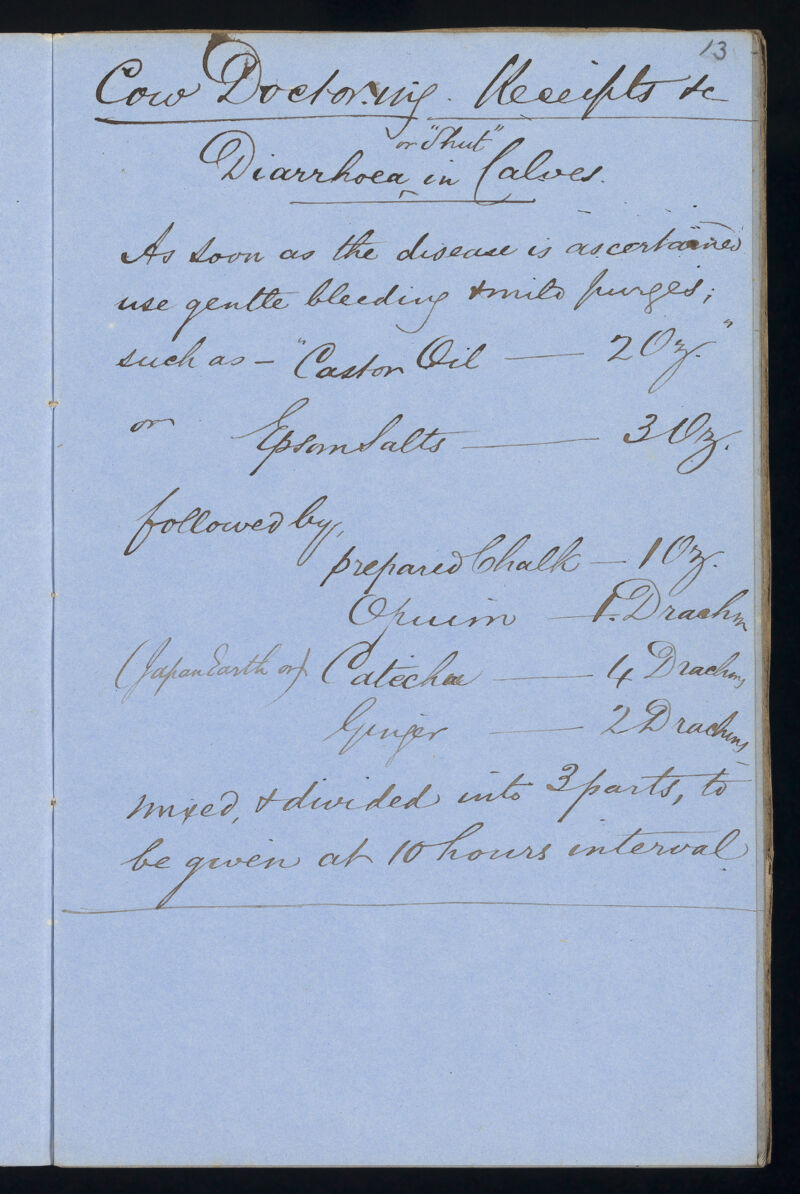 13
Cow Doctoring. Receipts &c
or "Shut"
Diarrhoea in Calves.
As soon as the disease is ascertained
use gentle bleeding & mild purges;
such as – "Castor Oil — 2 Oz."
or Epsom Salts — 3 Oz.
followed by,
prepared Chalk — 1 Oz.
Opium — 1. Drachm
(Japan Earth or) Catechu — 4 Drachms
Ginger — 2 Drachms
mixed, & divided into 3 parts, to
be given at 10 hours interval